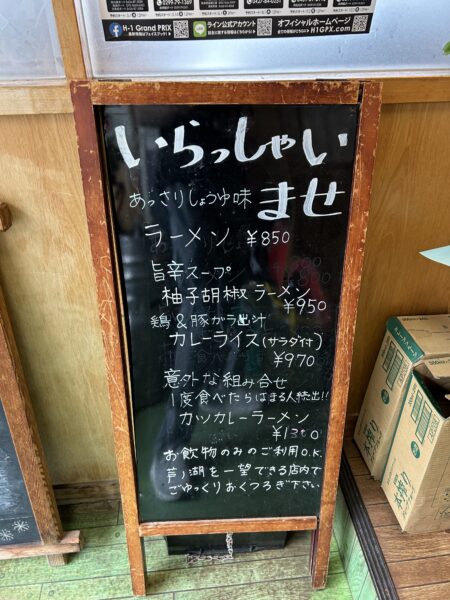 H-1 Grand PRIX
ライン公式アカウント
オフィシャルホームページ
H1GPX.com
いらっしゃい
ませ
あっさりしょうゆ味
ラーメン ¥850
旨辛スープ
柚子胡椒ラーメン
¥950
鶏&豚ガラ出汁
カレーライス(サラダ付)
¥970
意外な組み合せ
1度食べたらはまる人続出!!
カツカレーラーメン
¥1300
お飲物のみのご利用O.K.
芦ノ湖を一望できる店内で
ごゆっくりおくつろぎ下さい